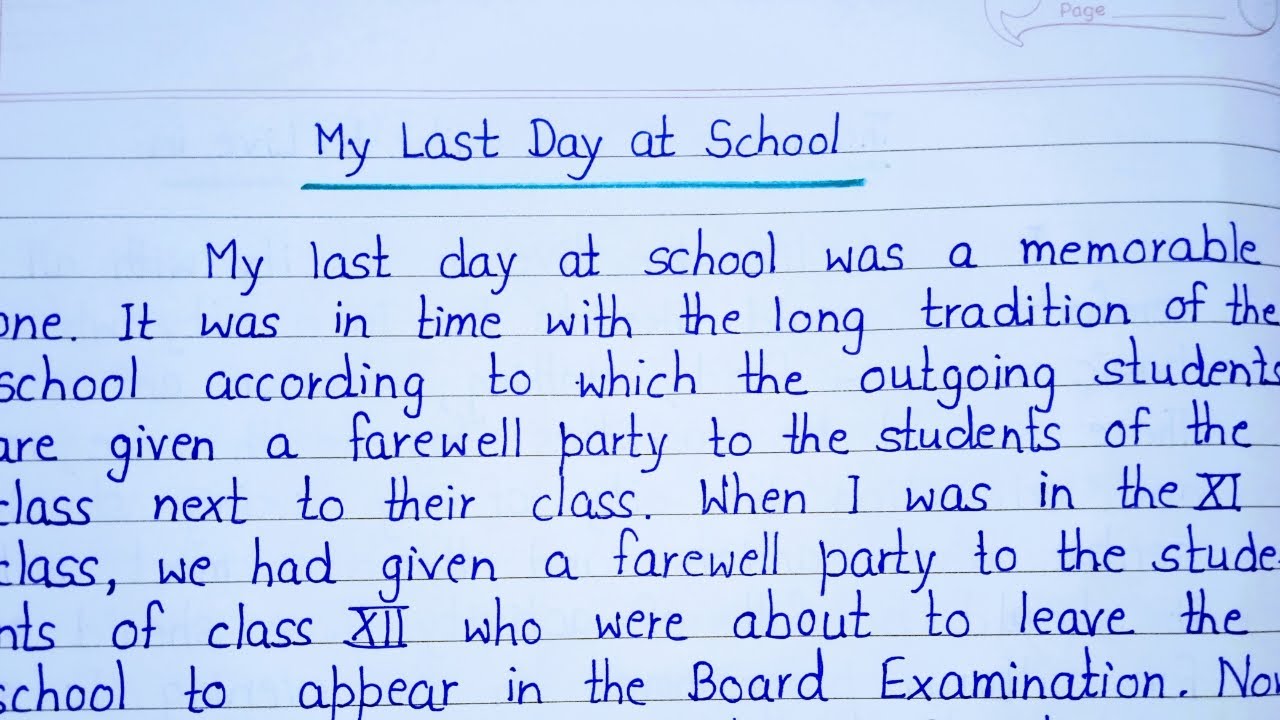 Page
My Last Day at School
My last day at school was a memorable
one. It was in time with the long tradition of the
school according to which the outgoing students
are given a farewell party to the students of the
class next to their class. When I was in the XI
class, we had given a farewell party to the stude-
nts of class XII who were about to leave the
school to appear in the Board Examination. Now